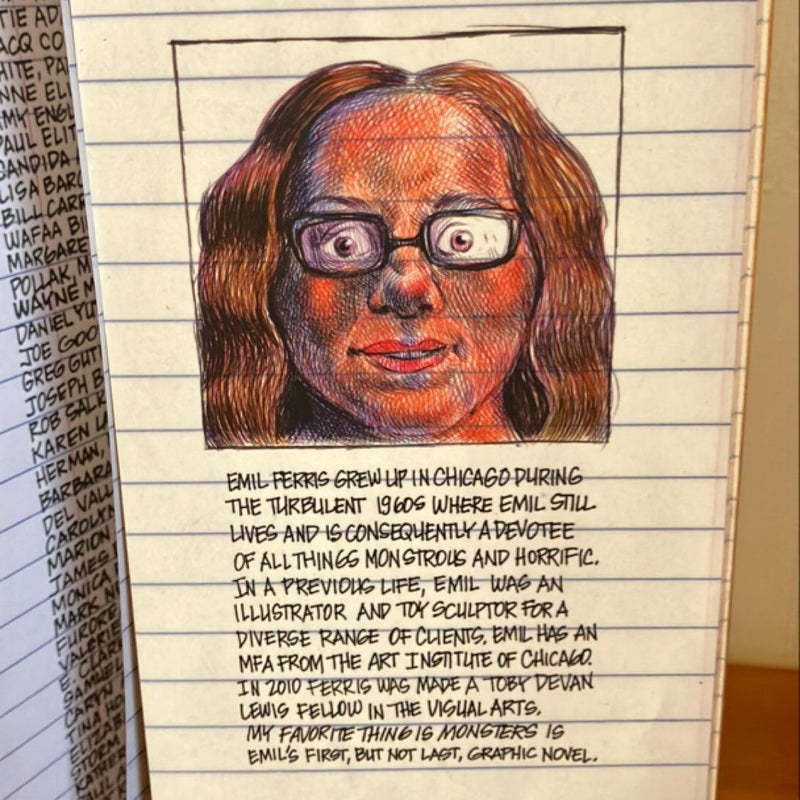 TIE AD
ACQ CO
HITE, PA
NNE EL
MY ENGL
PAUL ELIT
CANDIDA
LISA BARC
BILL CARR
WAFAA B
MARGARE
POLLAK, M
WAYNE M
DANIEL YU
JOE GOO
GREG GUT
JOSEPH B
ROB SALK
KAREN L
HERMAN,
BARBARA
DEL VALL
CAROLYN
MARION
JAMES
MONICA
MARK N
FURORE
VALERIE
E. CLARK
SAMUEL
CARYN
TINA HO
ELIZAB
STORM
KATHER
PAUL A
EMIL FERRIS GREW UP IN CHICAGO DURING
THE TURBULENT 1960S WHERE EMIL STILL
LIVES AND IS CONSEQUENTLY A DEVOTEE
OF ALL THINGS MONSTROUS AND HORRIFIC.
IN A PREVIOUS LIFE, EMIL WAS AN
ILLUSTRATOR AND TOY SCULPTOR FOR A
DIVERSE RANGE OF CLIENTS. EMIL HAS AN
MFA FROM THE ART INSTITUTE OF CHICAGO.
IN 2010 FERRIS WAS MADE A TOBY DEVAN
LEWIS FELLOW IN THE VISUAL ARTS.
MY FAVORITE THING IS MONSTERS IS
EMIL'S FIRST, BUT NOT LAST, GRAPHIC NOVEL.